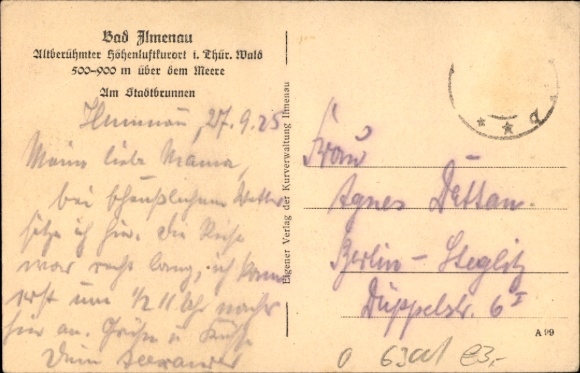 Bad Ilmenau
Altberühmter Höhenluftkurort i. Thür. Wald
500-900 m über dem Meere
Am Stadtbrunnen
Ilmenau, 27.9.25
Meine liebe Mama,
bei scheußlichem Wetter
sitze ich hier. Die Reise
war recht lang, ich kam
erst um 1/2 11 Uhr nachts
hier an. Grüße u. Küsse
Dein
Eigener Verlag der Kurverwaltung Ilmenau
Frau
Agnes Dettan.
Berlin - Steglitz
Düppelstr. 6 I
A 99